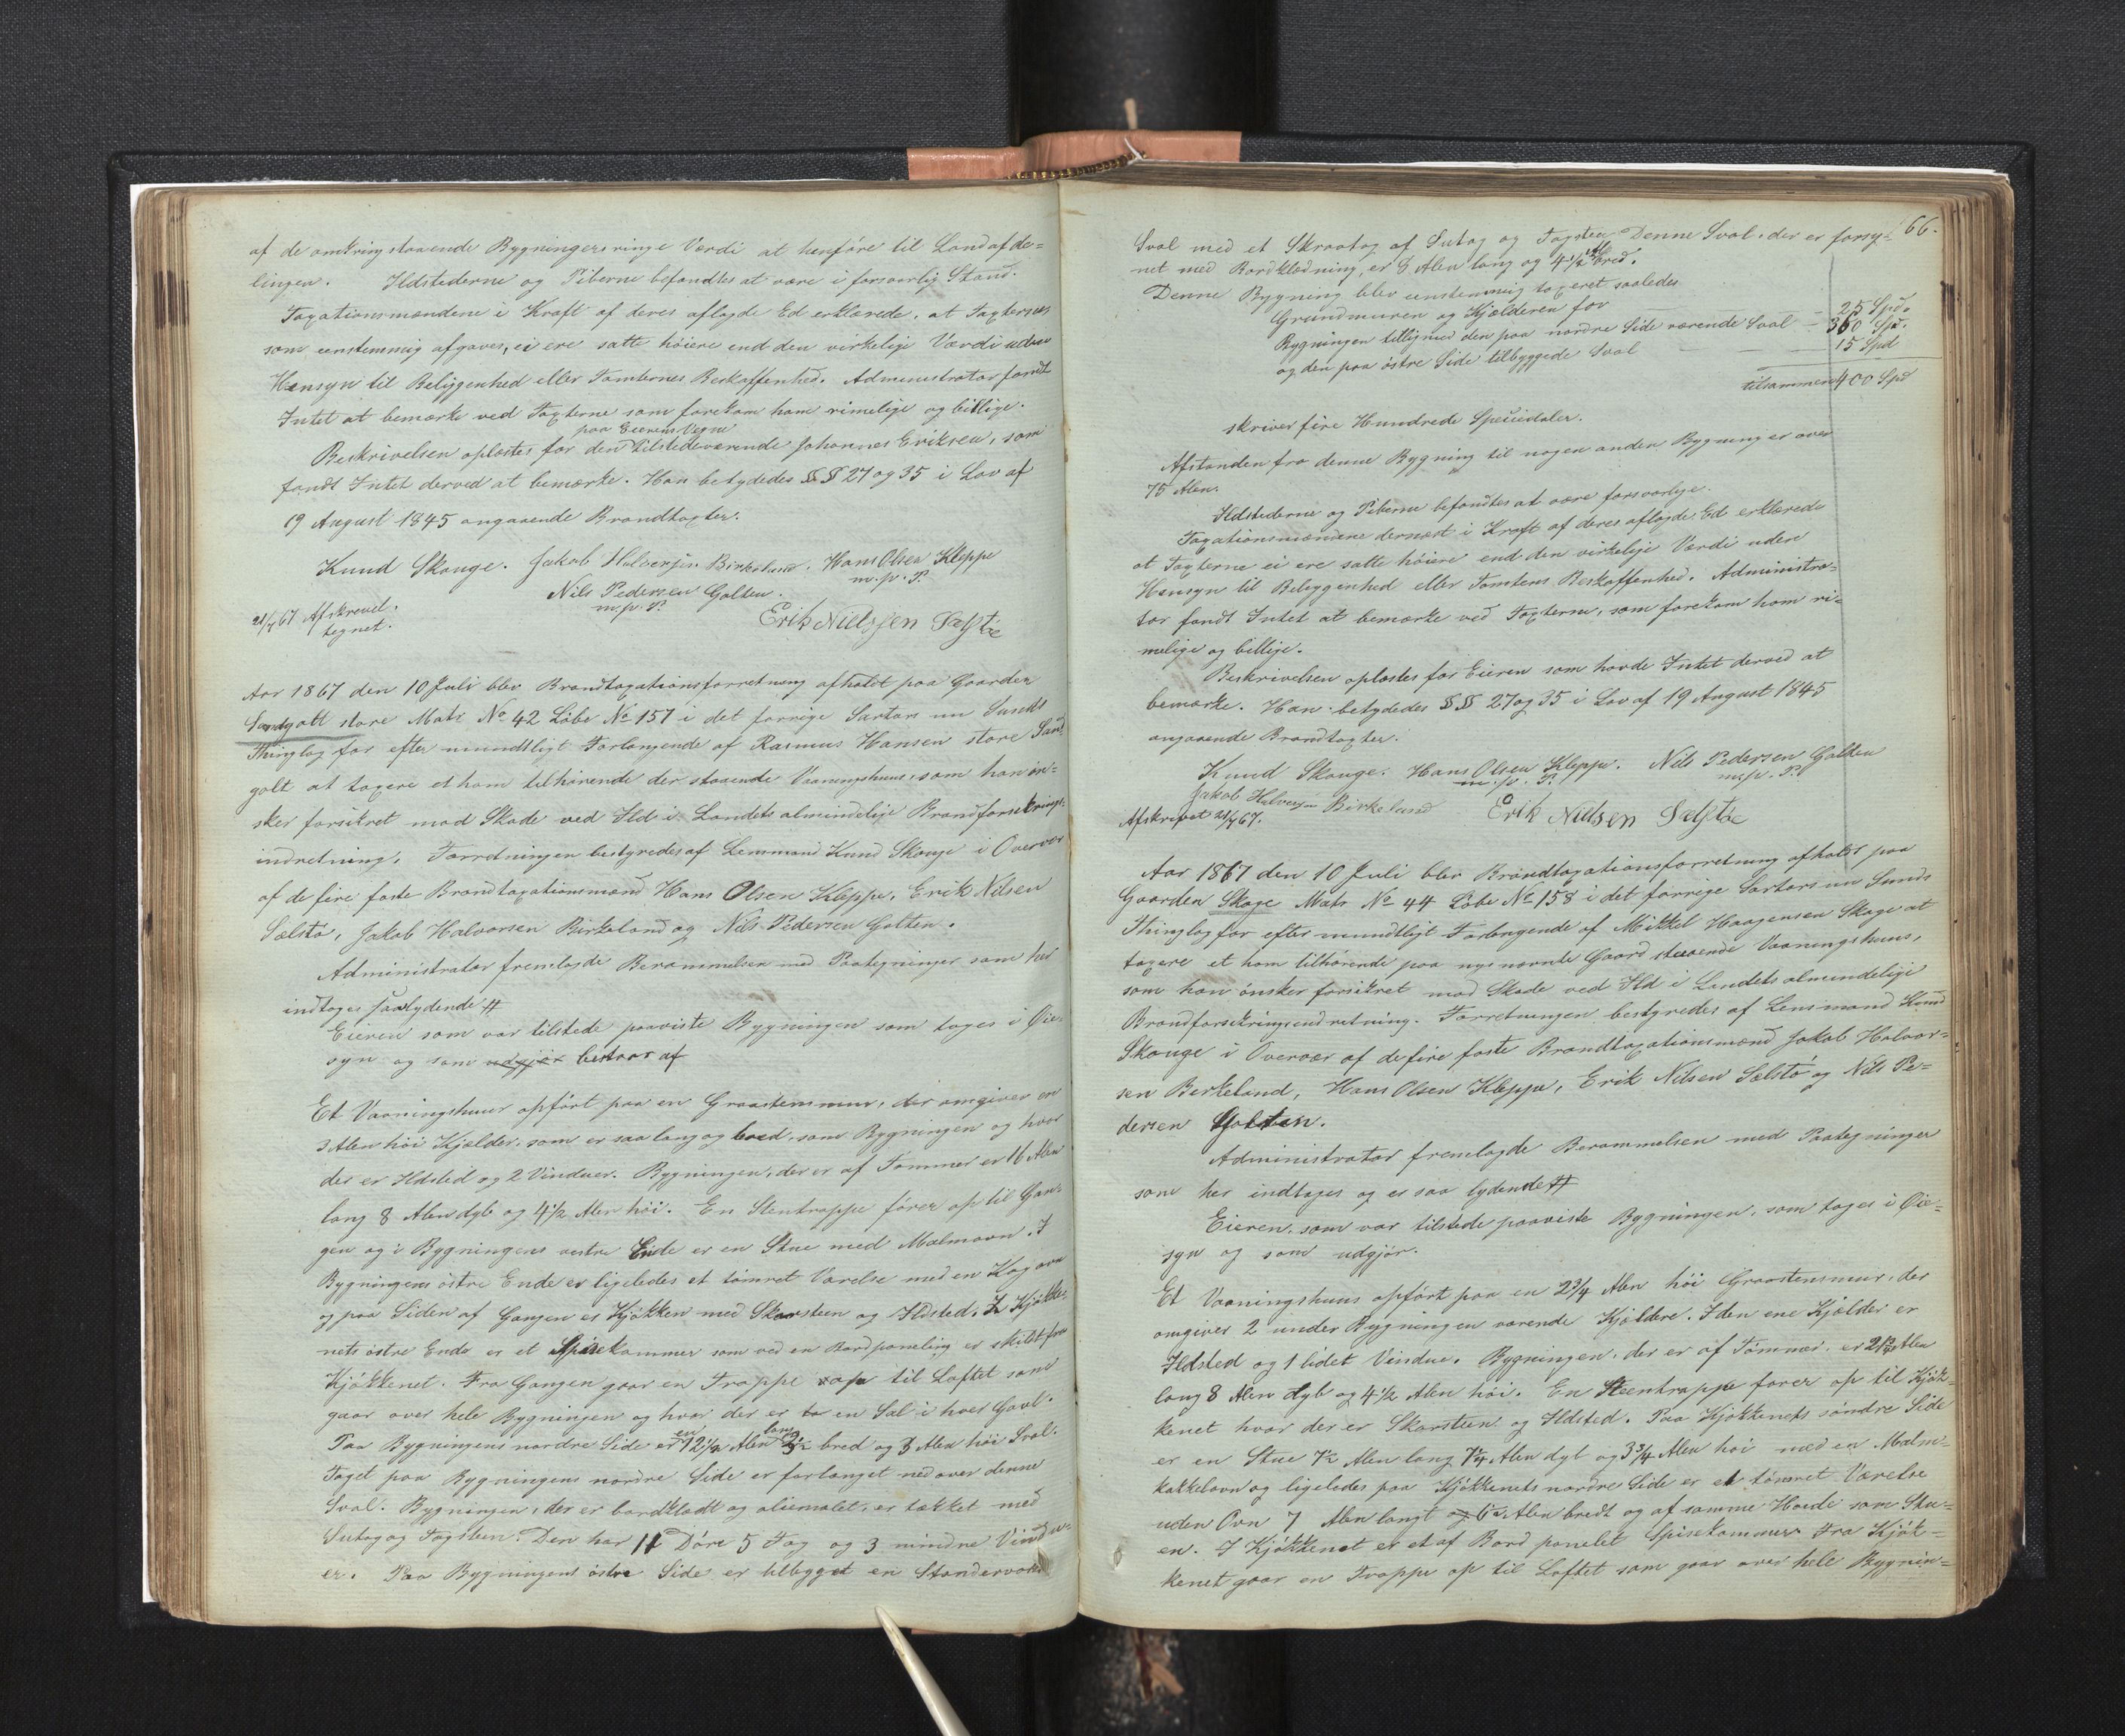 af de omkringstaaende Bygningers ringe Værdi at henføre til Landafde-
lingen. Ildstederne og Piberne befandtes at være i forsvarlig Stand.
Taxationsmændene i Kraft af deres aflagde Ed erklærede, at Taxterne
som eenstemmig afgaves, ei ere satte høiere end den virkelige Værdi uden
Hensyn til Beliggenhed eller Tomternes Beskaffenhed. Administrator fandt
Intet at bemærke ved Taxterne som forekom ham rimelige og billige.
paa Eierens Vegne
Beskrivelsen oplæstes for den tilstedeværende Johannes Eriksen, som
fandt Intet derved at bemærke. Han betydedes §§ 27 og 35 i Lov af
19 August 1845 angaaende Brandtaxter.
Knud Skauge. Jakob Halvorsen Birkeland. Hans Olsen Kleppe
m. p. P.
Nils Pedersen Golten.
m. p. P.
Erik Nielssen Sælstø
21/7 67 Afskrevet.
tegnet.
Aar 1867 den 10 Juli blev Brandtaxationsforretning afholdt paa Gaarden
Sandgolt store Matr No 42 Løbe No 157 i det forrige Sartors nu Sunds
Thinglag for efter mundtligt Forlangende af Rasmus Hansen store Sand-
golt at taxere et ham tilhørende der staaende Vaaningshuus, som han øn-
sker forsikret mod Skade ved Ild i Landets almindelige Brandforsikrings-
indretning. Forretningen bestyredes af Lensmand Knud Skauge i Overvær
af de fire faste Brandtaxationsmænd Hans Olsen Kleppe, Erik Nilsen
Sælstø, Jakob Halvorsen Birkeland og Nils Pedersen Golten.
Administrator fremlagde Berammelsen med Paategninger som her
indtages saalydende #
Eieren som var tilstede paaviste Bygningen som toges i Øie-
syn og som udgjør bestaar af
Et Vaaningshuus opført paa en Graasteensmuur, der omgiver en
3 Alen høi Kjælder, som er saa lang og bred, som Bygningen og hvor
der er Ildsted og 2 Vinduer. Bygningen, der er af Tømmer er 16 Alen
lang 8 Alen dyb og 4 1/2 Alen høi. En Stentrappe fører op til Gan-
gen og i Bygningens vestre Ende er en Stue med Malmovn. I
Bygningens østre Ende er ligeledes et tømret Værelse med en Kogovn
og paa Siden af Gangen er Kjøkken med Skorsteen og Ildsted. I Kjøkke-
nets østre Ende er et Spisekammer som ved en Bordpaneling er skilt fra
Kjøkkenet. Fra Gangen gaar en Trappe op til Loftet som
gaar over hele Bygningen og hvor der er to en Sal i hver Gavl.
en lang
Paa Bygningens nordre Side er 12 1/2 Alen 2 1/2 bred og 3 Alen høi Sval.
Taget paa Bygningens nordre Side er forlænget ned over denne
Sval. Bygningen, der er bordklædt og oliemalet, er tækket med
Sutag og Tagsteen. Den har 11 Døre 5 Fag og 3 mindre Vindu-
er. Paa Bygningens østre Side er tilbygget en Standerværks
66.
Sval med et Skraatag af Sutag og Tagsteen. Denne Sval, der er forsy-
Al
net med Bordklædning, er 8 Alen lang og 4 1/2 bred.
Denne Bygning blev eenstemmig taxeret saaledes
Grundmuren og Kjælderen for — 25 Spd.
Bygningen tilligemed den paa nordre Side værende Sval — 360 Spd.
og den paa østre Side tilbyggede Sval — 15 Spd
tilsammen 400 Spd
skriver fire Hundrede Speciedaler.
Afstanden fra denne Bygning til nogen anden Bygning er over
75 Alen.
Ildstederne og Piberne befandtes at være forsvarlige.
Taxationsmændene dernæst i Kraft af deres aflagde Ed erklærede
at Taxterne ei ere satte høiere end den virkelige Værdi uden
Hensyn til Beliggenhed eller Tomtens Beskaffenhed. Administra-
tor fandt Intet at bemærke ved Taxterne, som forekom ham ri-
melige og billige.
Beskrivelsen oplæstes for Eieren som havde Intet derved at
bemærke. Han betydedes §§ 27 og 35 i Lov af 19 August 1845
angaaende Brandtaxter.
Knud Skauge. Hans Olsen Kleppe. Nils Pedersen Golten
m. p. P. m. p. P.
Jakob Halvorsen Birkeland Erik Nielsen Sælstø
Afskrevet 21/7 67.
Aar 1867 den 10 Juli blev Brandtaxationsforretning afholdt paa
Gaarden Skage Matr No 44 Løbe No 158 i det forrige Sartors nu Sunds
Thinglag for efter mundtligt Forlangende af Mikkel Haagensen Skage at
taxere et ham tilhørende paa nysnævnte Gaard staaende Vaaningshuus,
som han ønsker forsikret mod Skade ved Ild i Landets almindelige
Brandforsikringsindretning. Forretningen bestyredes af Lensmand Knud
Skauge i Overvær af de fire faste Brandtaxationsmænd Jakob Halvor-
sen Birkeland, Hans Olsen Kleppe, Erik Nilsen Sælstø og Nils Pe-
dersen Golten.
Administrator fremlagde Berammelsen med Paategninger
som her indtages og er saa lydende #
Eieren, som var tilstede paaviste Bygningen, som toges i Øie-
syn og som udgjør.
Et Vaaningshuus opført paa en 2 3/4 Alen høi Graasteensmur, der
omgiver 2 under Bygningen værende Kjældere. I den ene Kjælder er
Ildsted og 1 lidet Vindue. Bygningen, der er af Tømmer, er Alen
lang 8 Alen dyb og 4 1/2 Alen høi. En Steentrappe fører op til Kjøk-
kenet hvor der er Skorsteen og Ildsted. Paa Kjøkkenets søndre Side
er en Stue 7 1/2 Alen lang 7 1/4 Alen dyb og 3 3/4 Alen høi med en Malm-
kakkelovn og ligeledes paa Kjøkkenets nordre Side er et tømret Værelse
uden Ovn 7 Alen langt og Alen bredt og af samme Høide som Stu-
en. I Kjøkkenet er et af Bord panelet Spisekammer. Fra Kjøk-
kenet gaar en Trappe op til Loftet som gaar over hele Bygnin-